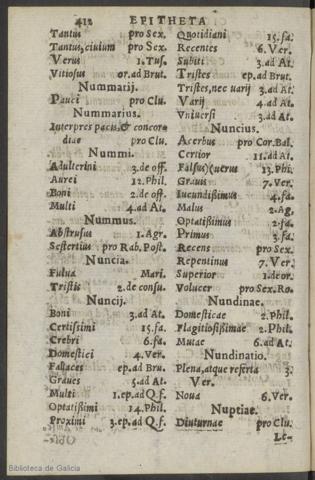 412 EPITHETA
Tantus pro Sex.
Tantus, ciuium pro Sex.
Verus 1. Tus.
Vitiosus or. ad Brut.
Nummarij.
Pauci pro Clu.
Nummarius.
Interpres pacis, & concor-
diae pro Clu.
Nummi.
Adulterini 3. de off.
Aurei 12. Phil.
Boni 2. de off.
Multi 4. ad At.
Nummus.
Abstrusus 1. Agr.
Sestertius pro Rab. Post.
Nuncia.
Fulua Mari.
Tristis 2. de consu.
Nuncij.
Boni 3. ad At.
Certissimi 15. fa.
Crebri 6. fa.
Domestici 4. Ver.
Fallaces ep. ad Bru.
Graues 5. ad At.
Multi 1. ep. ad Q. f.
Optatissimi 14. Phil.
Proximi 3. ep. ad Q. f.
Quotidiani 15. fa.
Recentes 6. Ver.
Subiti 3. ad At.
Tristes ep. ad Bru.
Tristes, nec uarij 3. ad At.
Varij 4. ad At.
Vniuersi 3. ad At.
Nuncius.
Acerbus pro Cor. Bal.
Certior 11. ad At.
Falsus, (uerus 13. Phi.
Grauis 7. Ver.
Iucundissimus 4. fa.
Malus 2. Ag.
Optatissimus 2. fa.
Primus 3. fa.
Recens pro Sex.
Repentinus 7. Ver.
Superior 1. de or.
Volucer pro Sex. Ro.
Nundinae.
Domesticae 2. Phil.
Flagitiosissimae 2. Phil.
Mutae 6. ad At.
Nundinatio.
Plena, atque referta 3.
Ver.
Noua 6. Ver.
Nuptiae.
Diuturnae pro Clu.
Le-
Biblioteca de Galicia